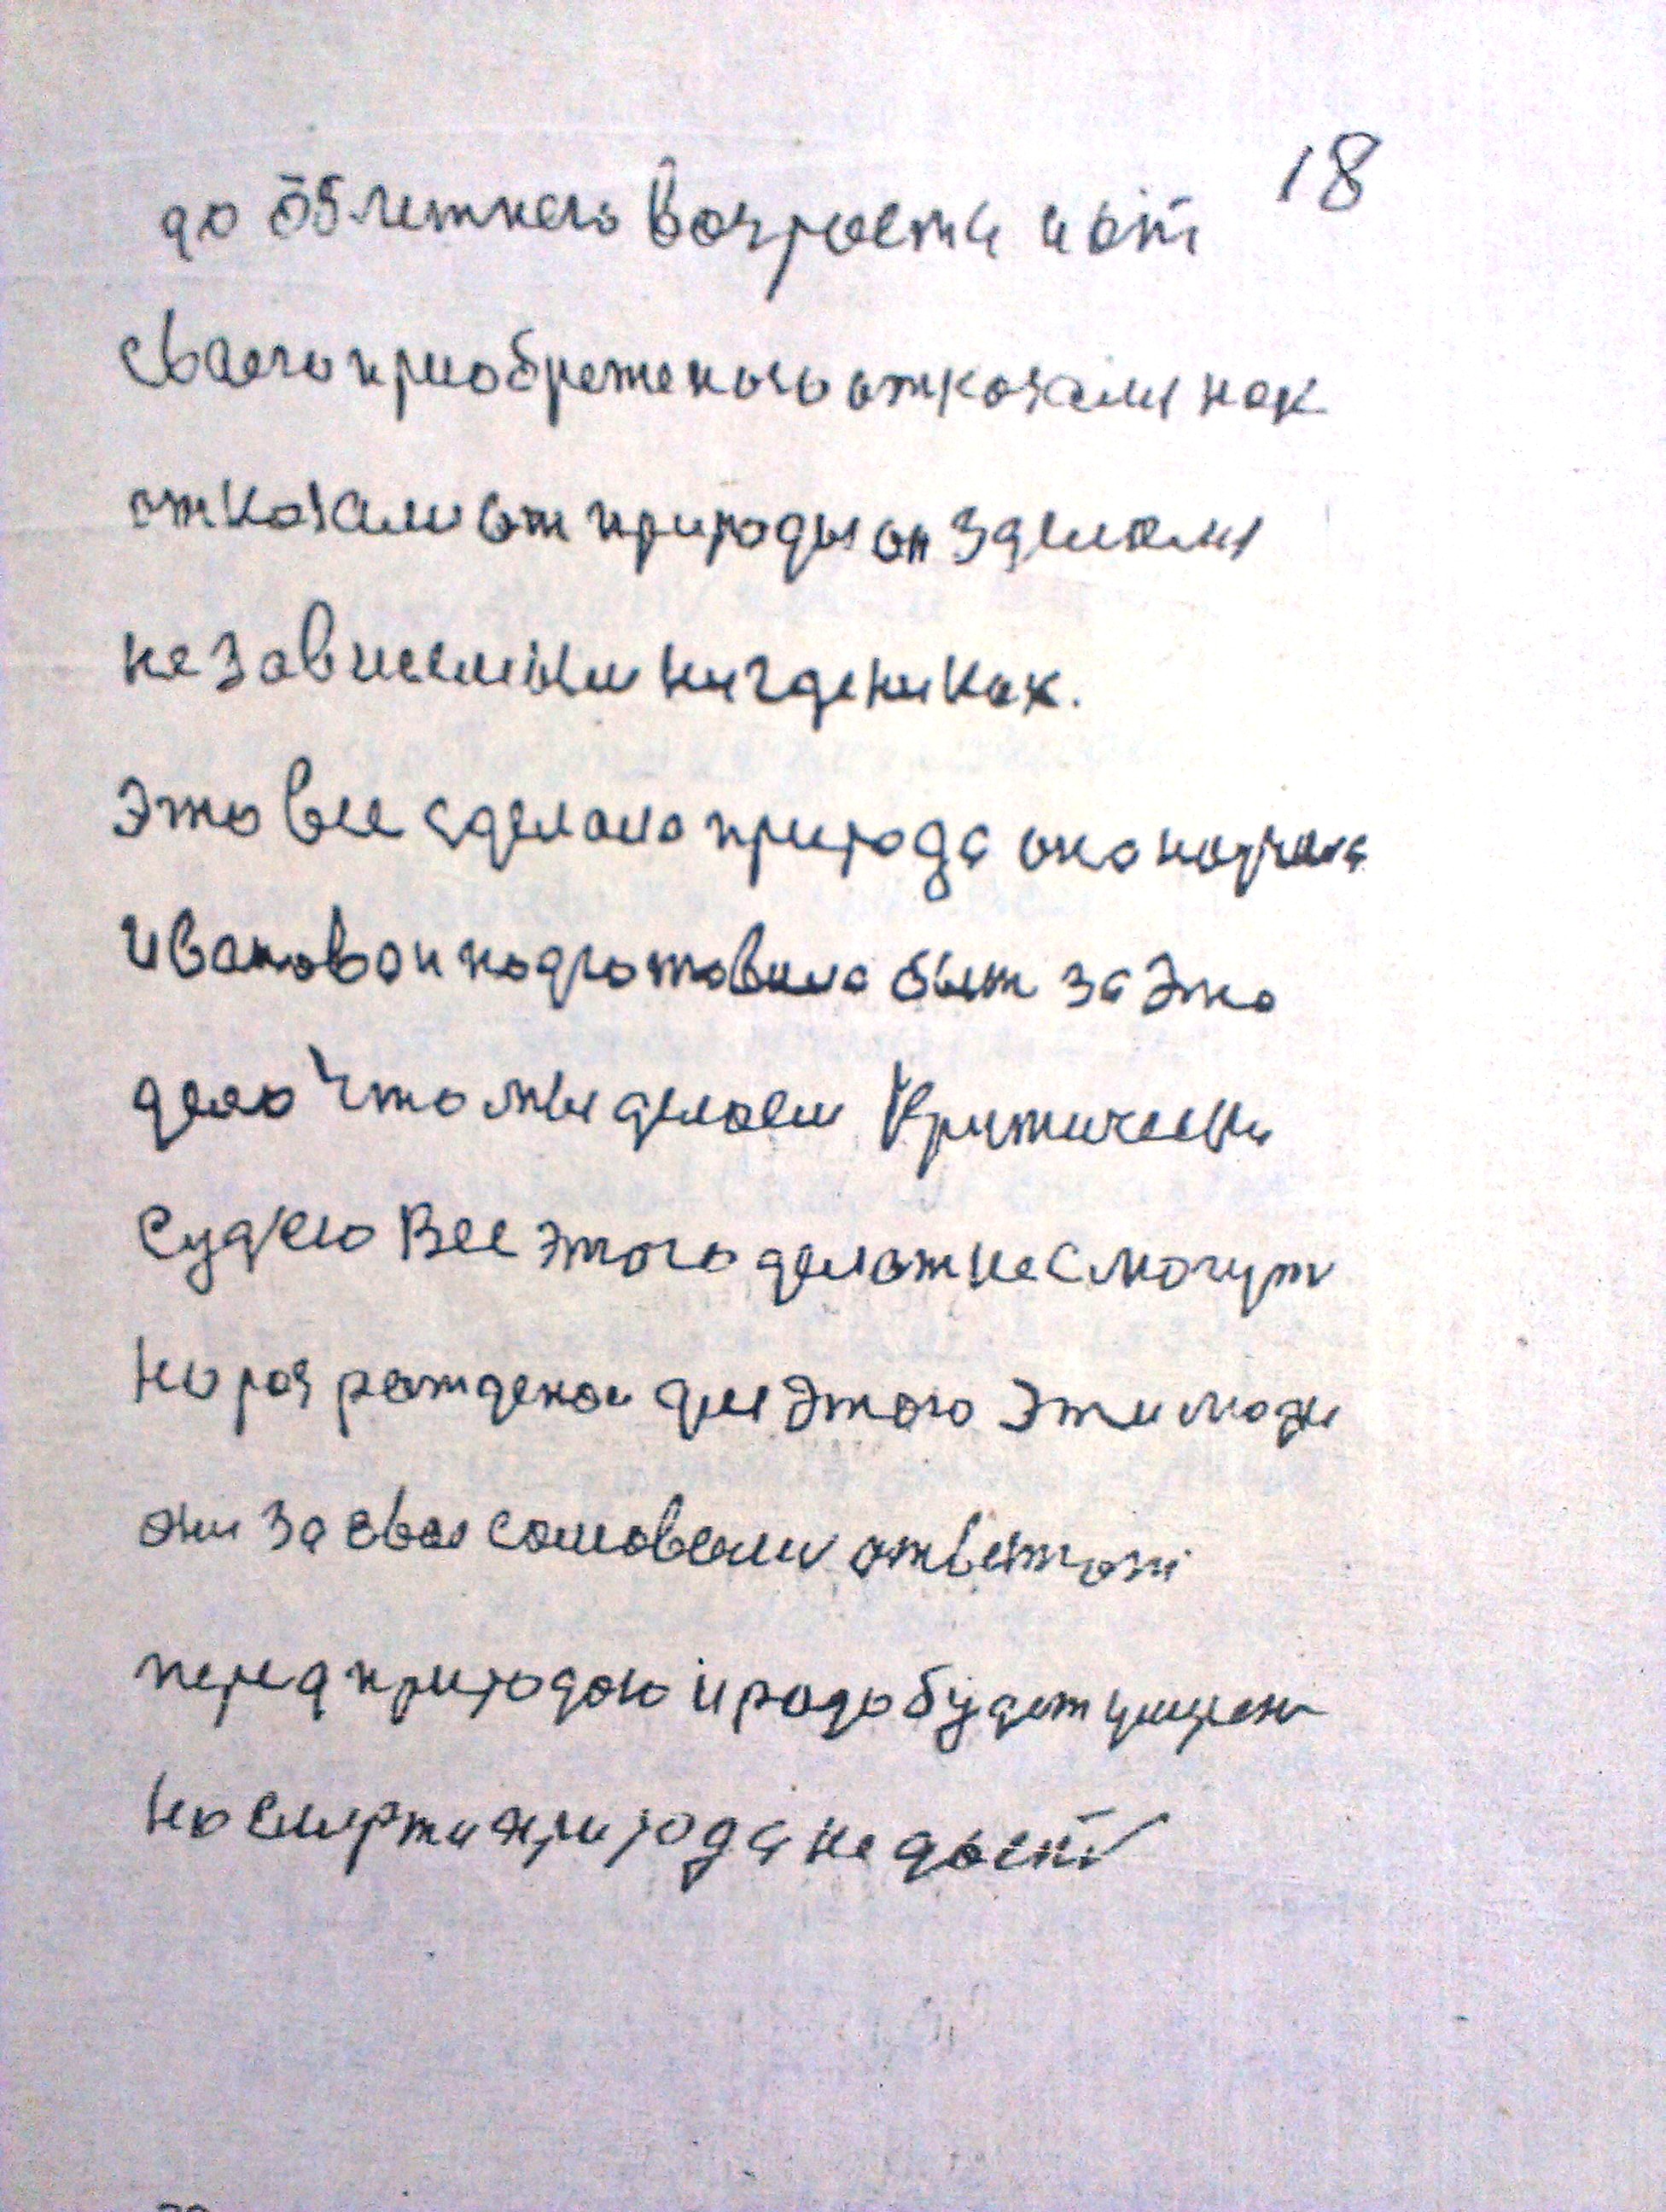 18
до 55 летнего возраста и от
сваего приобретеного отказались как
отказали от природы он зделали
не зависемыми ни где ни как.
Это все сделала природа она научила
Иванова и подготовила быт за это
дело что мы делоем Критически
Судею Все этого делат не смогут
не раз рождено для этого эти люди
они за свое самовели ответят
перед природою и рада будет умереть
но смерти природа не даст